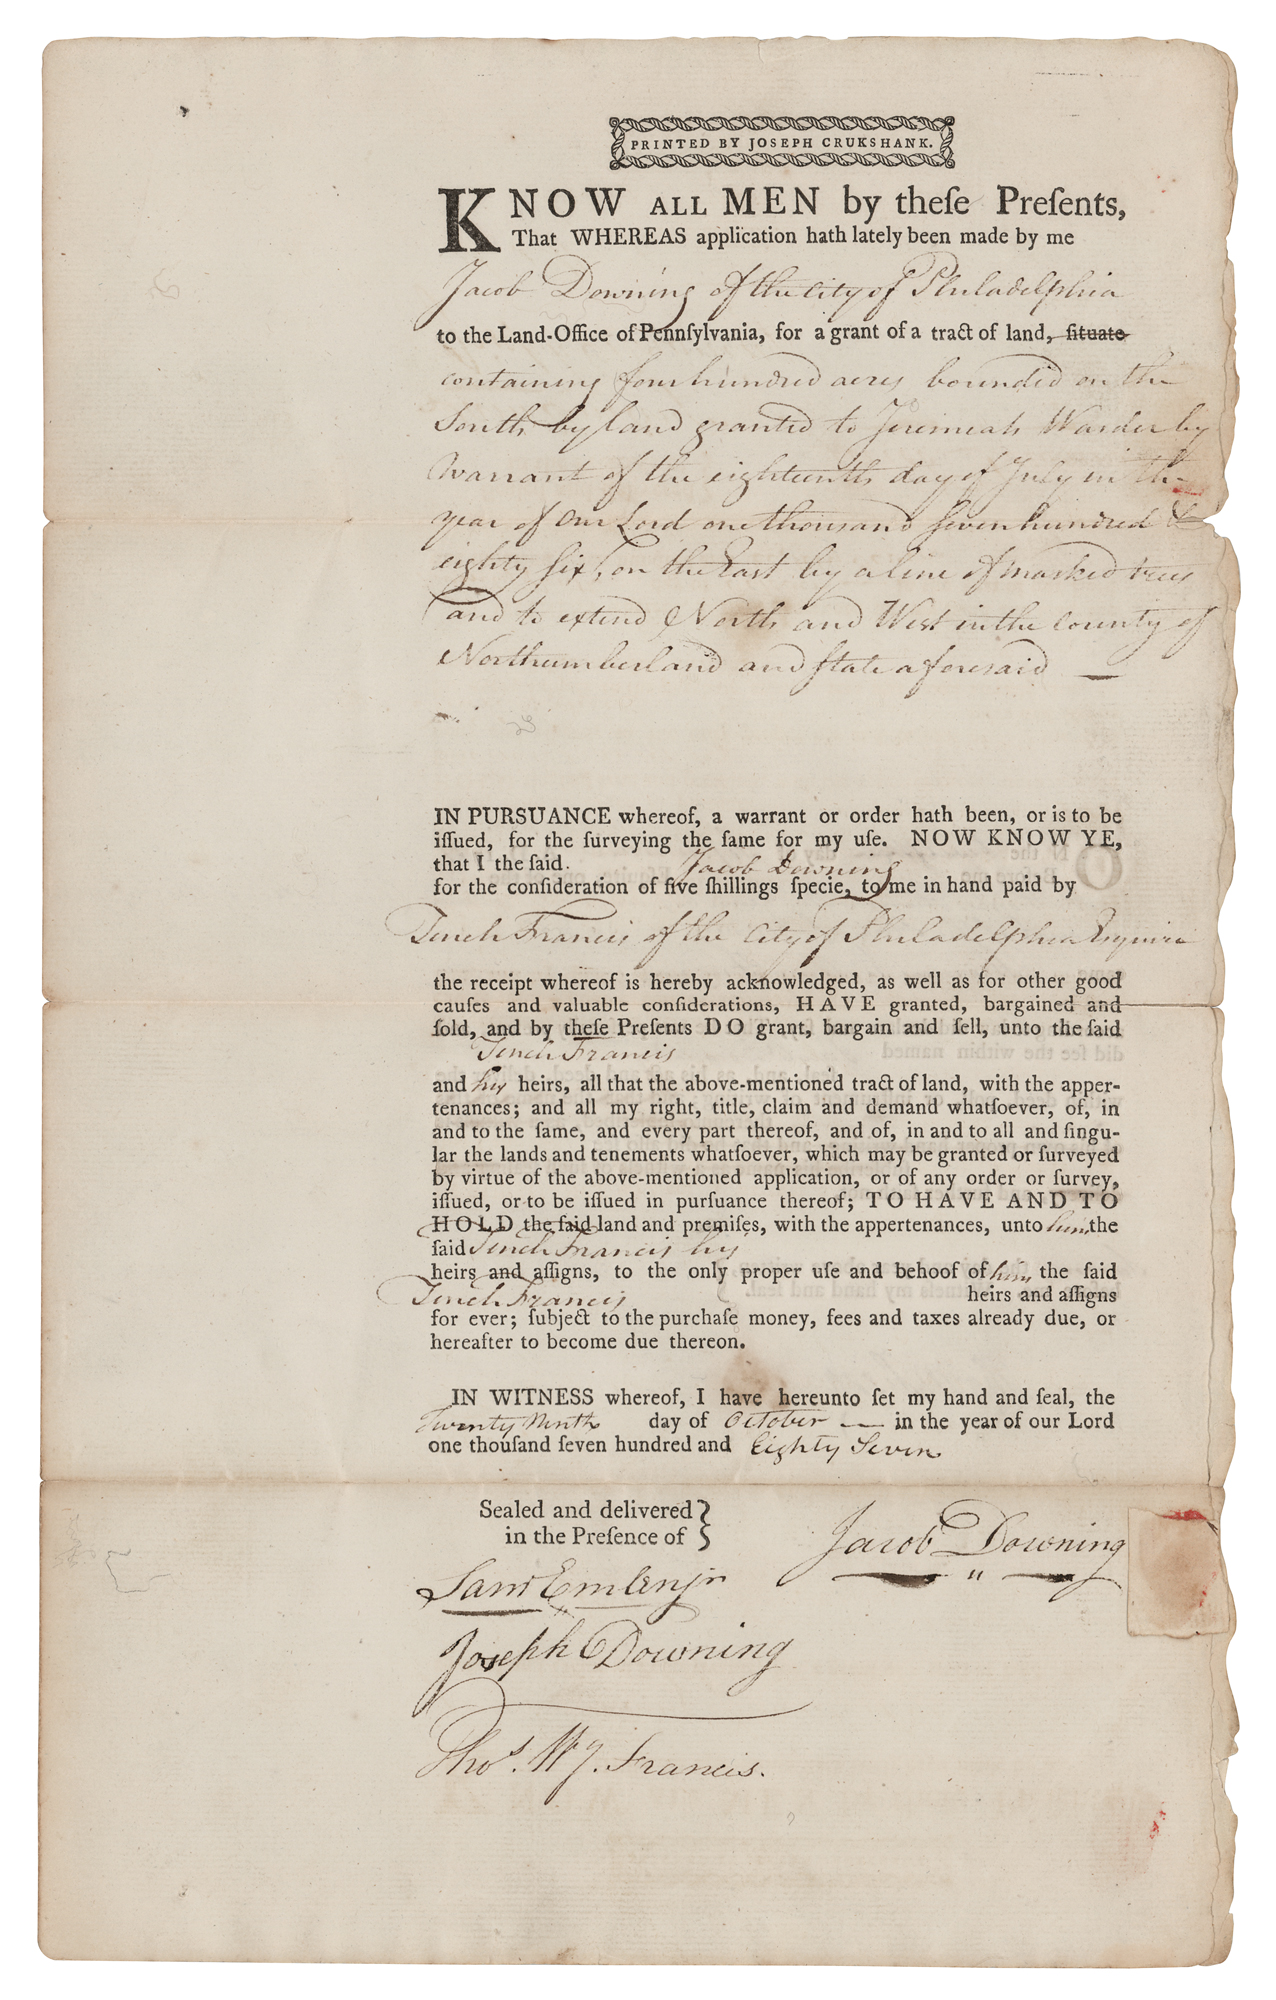 PRINTED BY JOSEPH CRUKSHANK.
KNOW ALL MEN by theſe Preſents,
That WHEREAS application hath lately been made by me
Jacob Downing of the City of Philadelphia
to the Land-Office of Pennſylvania, for a grant of a tract of land, ſituate
containing four hundred acres bounded on the
South by land granted to Jeremiah Warder by
Warrant of the eighteenth day of July in the
year of our Lord one thousand seven hundred &
eighty six, on the East by a line of marked trees
and to extend North and West in the County of
Northumberland and state aforesaid
IN PURSUANCE whereof, a warrant or order hath been, or is to be
iſſued, for the ſurveying the ſame for my uſe. NOW KNOW YE,
that I the ſaid. Jacob Downing
for the conſideration of five ſhillings ſpecie, to me in hand paid by
Tench Francis of the City of Philadelphia Esquire
the receipt whereof is hereby acknowledged, as well as for other good
cauſes and valuable conſiderations, HAVE granted, bargained and
ſold, and by theſe Preſents DO grant, bargain and ſell, unto the ſaid
Tench Francis
and his heirs, all that the above-mentioned tract of land, with the apper-
tenances; and all my right, title, claim and demand whatſoever, of, in
and to the ſame, and every part thereof, and of, in and to all and ſingu-
lar the lands and tenements whatſoever, which may be granted or ſurveyed
by virtue of the above-mentioned application, or of any order or ſurvey,
iſſued, or to be iſſued in purſuance thereof; TO HAVE AND TO
HOLD the ſaid land and premiſes, with the appertenances, unto him the
ſaid Tench Francis his
heirs and aſſigns, to the only proper uſe and behoof of him the ſaid
Tench Francis heirs and aſſigns
for ever; ſubject to the purchaſe money, fees and taxes already due, or
hereafter to become due thereon.
IN WITNESS whereof, I have hereunto ſet my hand and ſeal, the
Twenty Ninth day of October — in the year of our Lord
one thouſand ſeven hundred and Eighty Seven
Sealed and delivered
in the Preſence of
Jacob Downing
Saml Emlen jr
Joseph Downing
Thos. Wg. Francis.